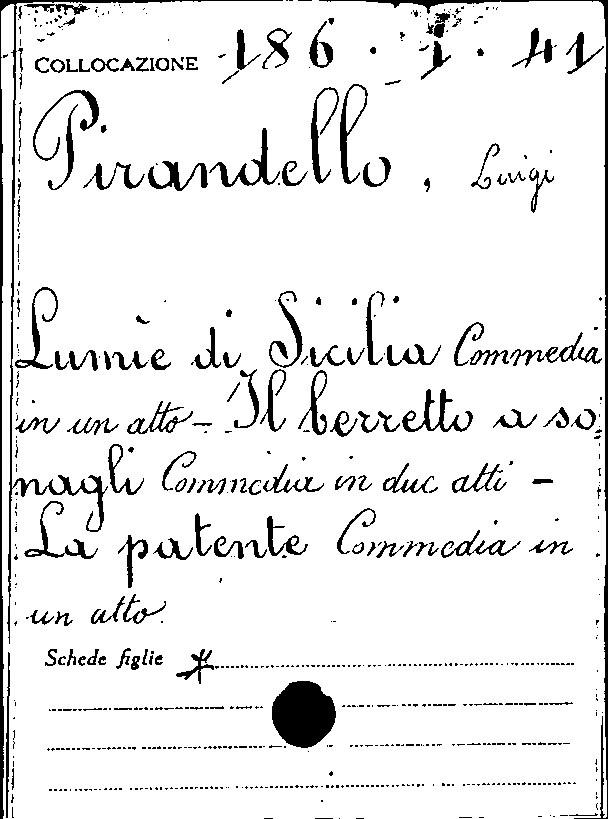 COLLOCAZIONE 186.1.41
Pirandello, Luigi
Lumìe di Sicilia Commedia
in un atto - Il berretto a so
nagli Commedia in due atti -
La patente Commedia in
un atto.
Schede figlie